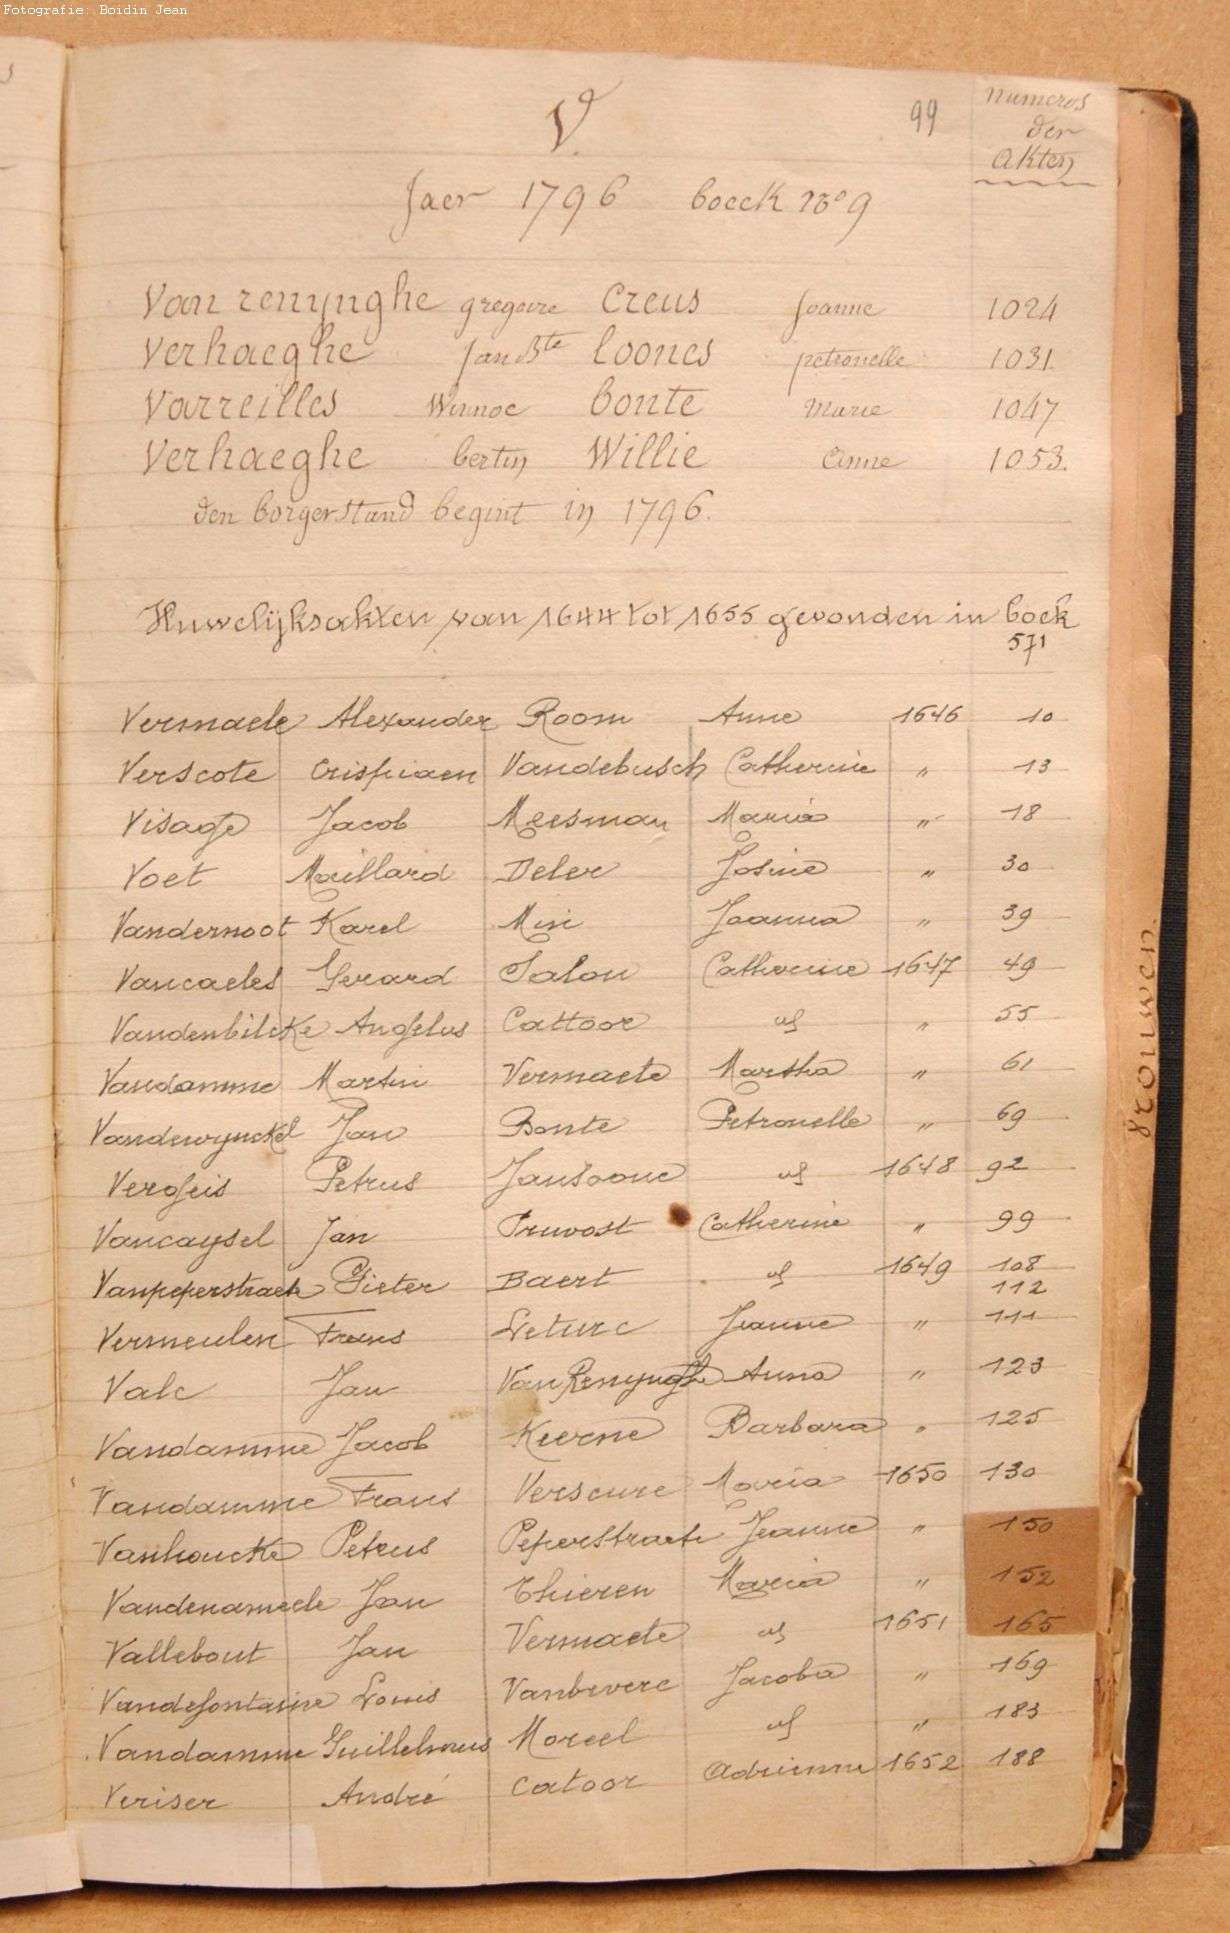 Fotografie: Boidin Jean
V.
99
numeros
der
akten
Jaer 1796 boeck No 9
Van renynghe gregoire Creus Joanne 1024
Verhaeghe Jan Bte loones petronelle 1031
Varreilles Winnoc bonte Marie 1047
Verhaeghe bertin Willie Anne 1053.
den borgerstand begint in 1796.
Huwelijksakten van 1644 tot 1655 gevonden in boek
571
Vermaele Alexander Room Anne 1646 10
Verscote Crispiaen Vandebusch Catherine " 13
Visage Jacob Meesman Maria " 18
Voet Maillard Deler Josine " 30
Vandernoot Karel Min Joanna " 39
Vancaeles Gerard Talon Catherine 1647 49
Vandenbilcke Angelus Cattoor " 55
Vandamme Martin Vermaete Martha " 61
Vandewynckel Jan Bonte Petronelle " 69
Vergeis Petrus Jansoone 1648 92
Vancaysel Jan Pruvost Catherine " 99
Vanpeperstraete Pieter Baert 1649 108
112
Vermeulen Frans Leturc Jeanne " 111
Valc Jan Van Renynghe Anna " 123
Vandamme Jacob Keerne Barbara " 125
Vandamme Frans Verscure Maria 1650 130
Vanhoucke Petrus Peperstraete Jeanne " 150
Vandenameele Jan Thieren Maria " 152
Vallebout Jan Vermaete 1651 165
Vandefontaine Louis Vanbevere Jacoba " 169
Vandamme Guillelmus Moreel " 183
Veriser André Catoor Adrienne 1652 188
vrouwen.